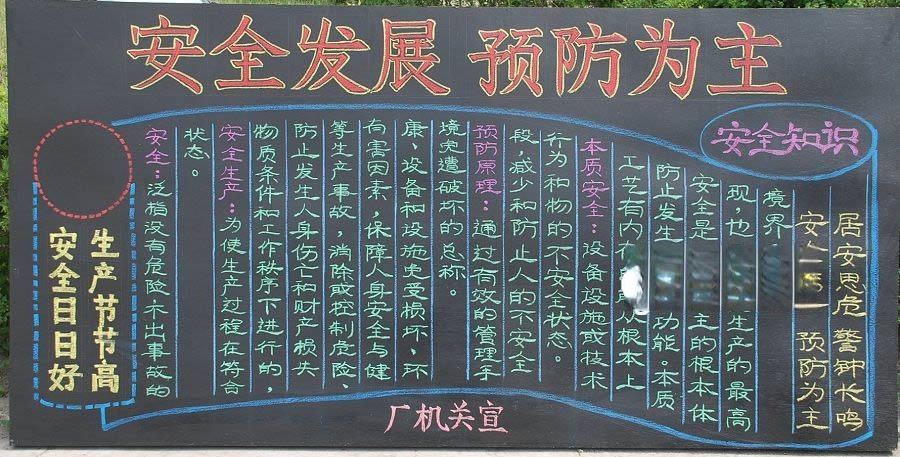 安全发展 预防为主
安全知识
生产节节高
安全日日好
安全：泛指没有危险不出事故的
状态。
安全生产：为使生产过程在符合
物质条件和工作秩序下进行的，
防止发生人身伤亡和财产损失
等生产事故，消除或控制危险、
有害因素，保障人身安全与健
康、设备和设施免受损坏、环
境免遭破坏的总称。
预防原理：通过有效的管理手
段，减少和防止人的不安全
行为和物的不安全状态。
本质安全：设备设施或技术
工艺有内在 从根本上
防止发生 功能。本质
安全是 主的根本体
现，也 生产的最高
境界
安全 一 预防为主
居安思危 警钟长鸣
厂机关宣